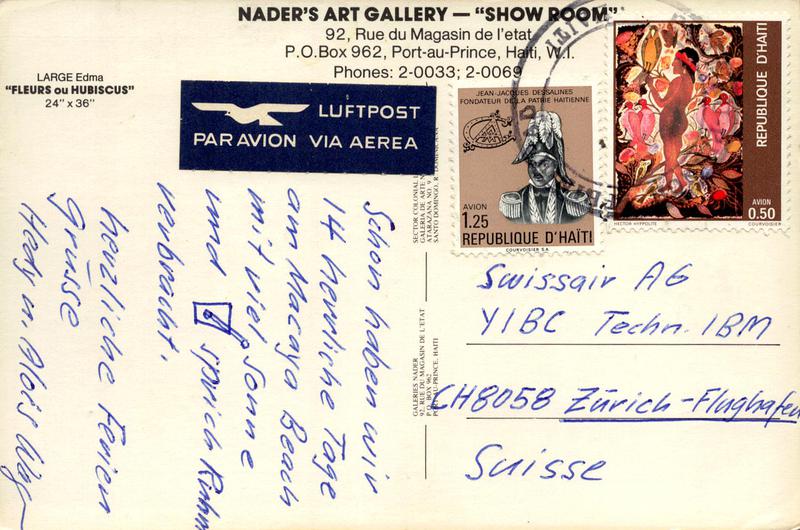 NADER'S ART GALLERY — "SHOW ROOM"
92, Rue du Magasin de l'etat
P.O.Box 962, Port-au-Prince, Haiti, W.I.
Phones: 2-0033; 2-0069
LARGE Edma
"FLEURS ou HUBISCUS"
24" x 36"
LUFTPOST
PAR AVION VIA AEREA
JEAN-JACQUES DESSALINES
FONDATEUR DE LA PATRIE HAITIENNE
AVION
1.25
REPUBLIQUE D'HAÏTI
COURVOISIER S.A.
REPUBLIQUE D'HAÏTI
AVION
0.50
HECTOR HYPPOLITE
COURVOISIER
SECTOR COLONIAL
GALERIA DE ARTE N
ATARAZANA NO. 9
SANTO DOMINGO, R. DOMINICANA
GALERIES NADER
92, RUE DU MAGASIN DE L'ETAT
P.O. BOX 962
PORT-AU-PRINCE, HAITI
Schon haben wir
14 herrliche Tage
am Macaya Beach
mit viel Sonne
und sprich
verbracht.
herzliche Ferien
grüsse
Hedy u. Alois
Swissair AG
YIBC Techn. IBM
CH8058 Zürich-Flughafen
Suisse